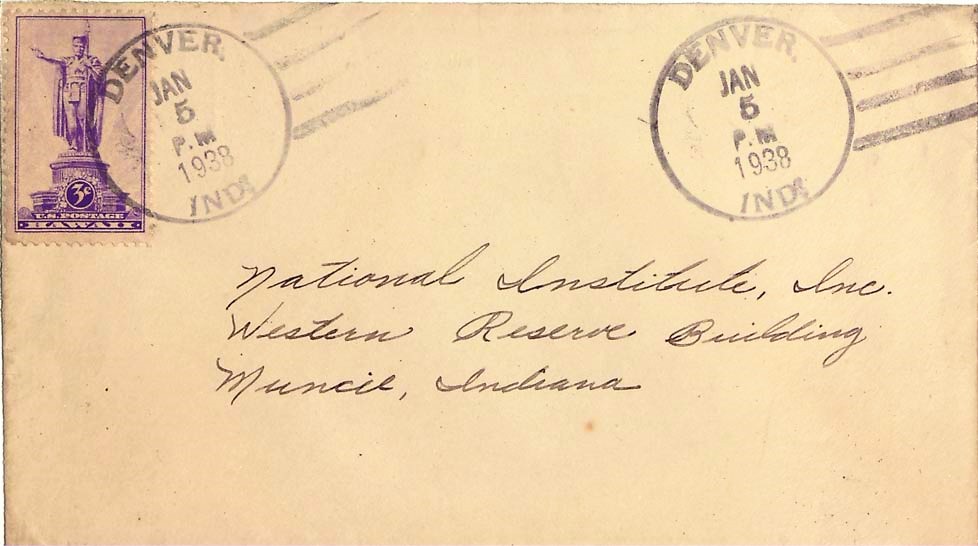 DENVER.
JAN
5
P.M
1938
IND.
3¢
U.S. POSTAGE
HAWAII
DENVER.
JAN
5
P.M
1938
IND.
National Institute, Inc.
Western Reserve Building
Muncie, Indiana